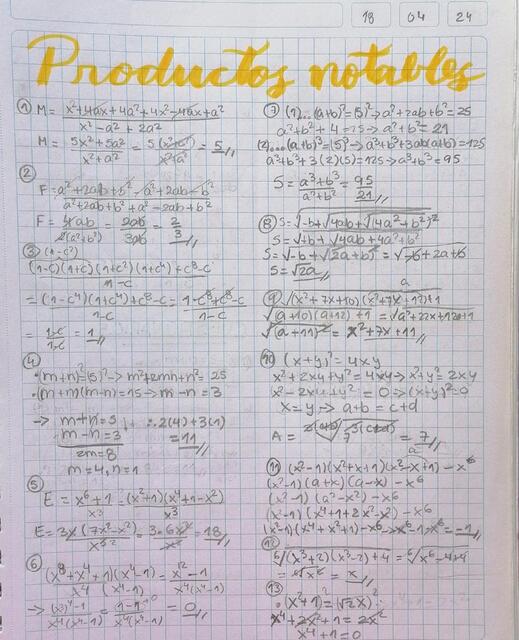 18 04 24
Productos notables
① M = x²+4ax+4a²+4x²-4ax+a² / x²-a²+2a²
M = 5x²+5a² / x²+a² = 5(x²+a²) / x²+a² = 5//
②
F = a²+2ab+b²-a²+2ab-b² / a²+2ab+b²+a²-2ab+b²
F = 4ab / 2(a²+b²) = 2ab / 3ab = 2/3//
③ (1-c²)
(1-c)(1+c)(1+c²)(1+c⁴)+c⁸-c / 1-c
= (1-c⁴)(1+c⁴)+c⁸-c / 1-c = 1-c⁸+c⁸-c / 1-c
= 1-c / 1-c = 1//
④
•(m+n)²=(5)²-> m²+2mn+n²= 25
•(m+n)(m-n)=15-> m-n = 3
-> m+n=5
m-n=3
∴ 2(4)+3(1)
= 11
2m=8
m=4, n=1
⑤
E = x⁶+1 / x³ = (x²+1)(x⁴+1-x²) / x³
E = 3x(7x²-x²) / x³ = 3·6x³ / x³ = 18//
⑥
(x⁸+x⁴+1)(x⁴-1) / x⁴ (x⁴-1) = x¹²-1 / x⁴(x⁴-1)
= 0//
⑦ (1)...(a+b)²=(5)²->a²+2ab+b²=25
a²+b²+4=25->a²+b²=21
(2)...(a+b)³=(5)³->a³+b³+3ab(a+b)=125
a³+b³+3(2)(5)=125->a³+b³=95
S = a³+b³ / a²+b² = 95 / 21//
⑧ S=√-b+√4ab+√(4a²+b²)²
S=√-b+√4ab+4a²+b²
S=√-b+√(2a+b)² = √-b+2a+b
S=√2a//
⑨ √(x²+7x+10)(x²+7x+12)+1
√(a+10)(a+12)+1 = √a²+22x+120+1
√(a+11)² = x²+7x+11//
⑩ (x+y)²=4xy
x²+2xy+y²=4xy->x²+y²=2xy
x²-2xy+y²=0->(x+y)²=0
x=y-> a+b=c+d
A = = 7//
⑪ (x²-1)(x²+x+1)(x²-x+1)-x⁶
(x²-1)(a+x)(a-x)-x⁶
(x²-1)(a²-x²)-x⁶
(x²-1)(x⁴+1+2x²-x²)-x⁶
(x²-1)(x⁴+x²+1)-x⁶->x⁶-1-x⁶=-1//
⑫
⁶√(x³+2)(x³-2)+4 = ⁶√x⁶-4+4
= ⁶√x⁶ = x//
⑬
•(x²+1)²=(√2x)²
x⁴+2x²+1=2x²
x⁴+1=0